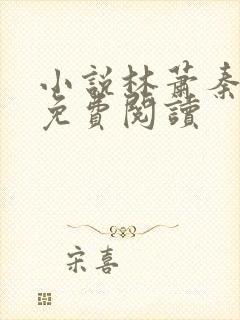 小說林蕭秦
免費閱讀
宋喜